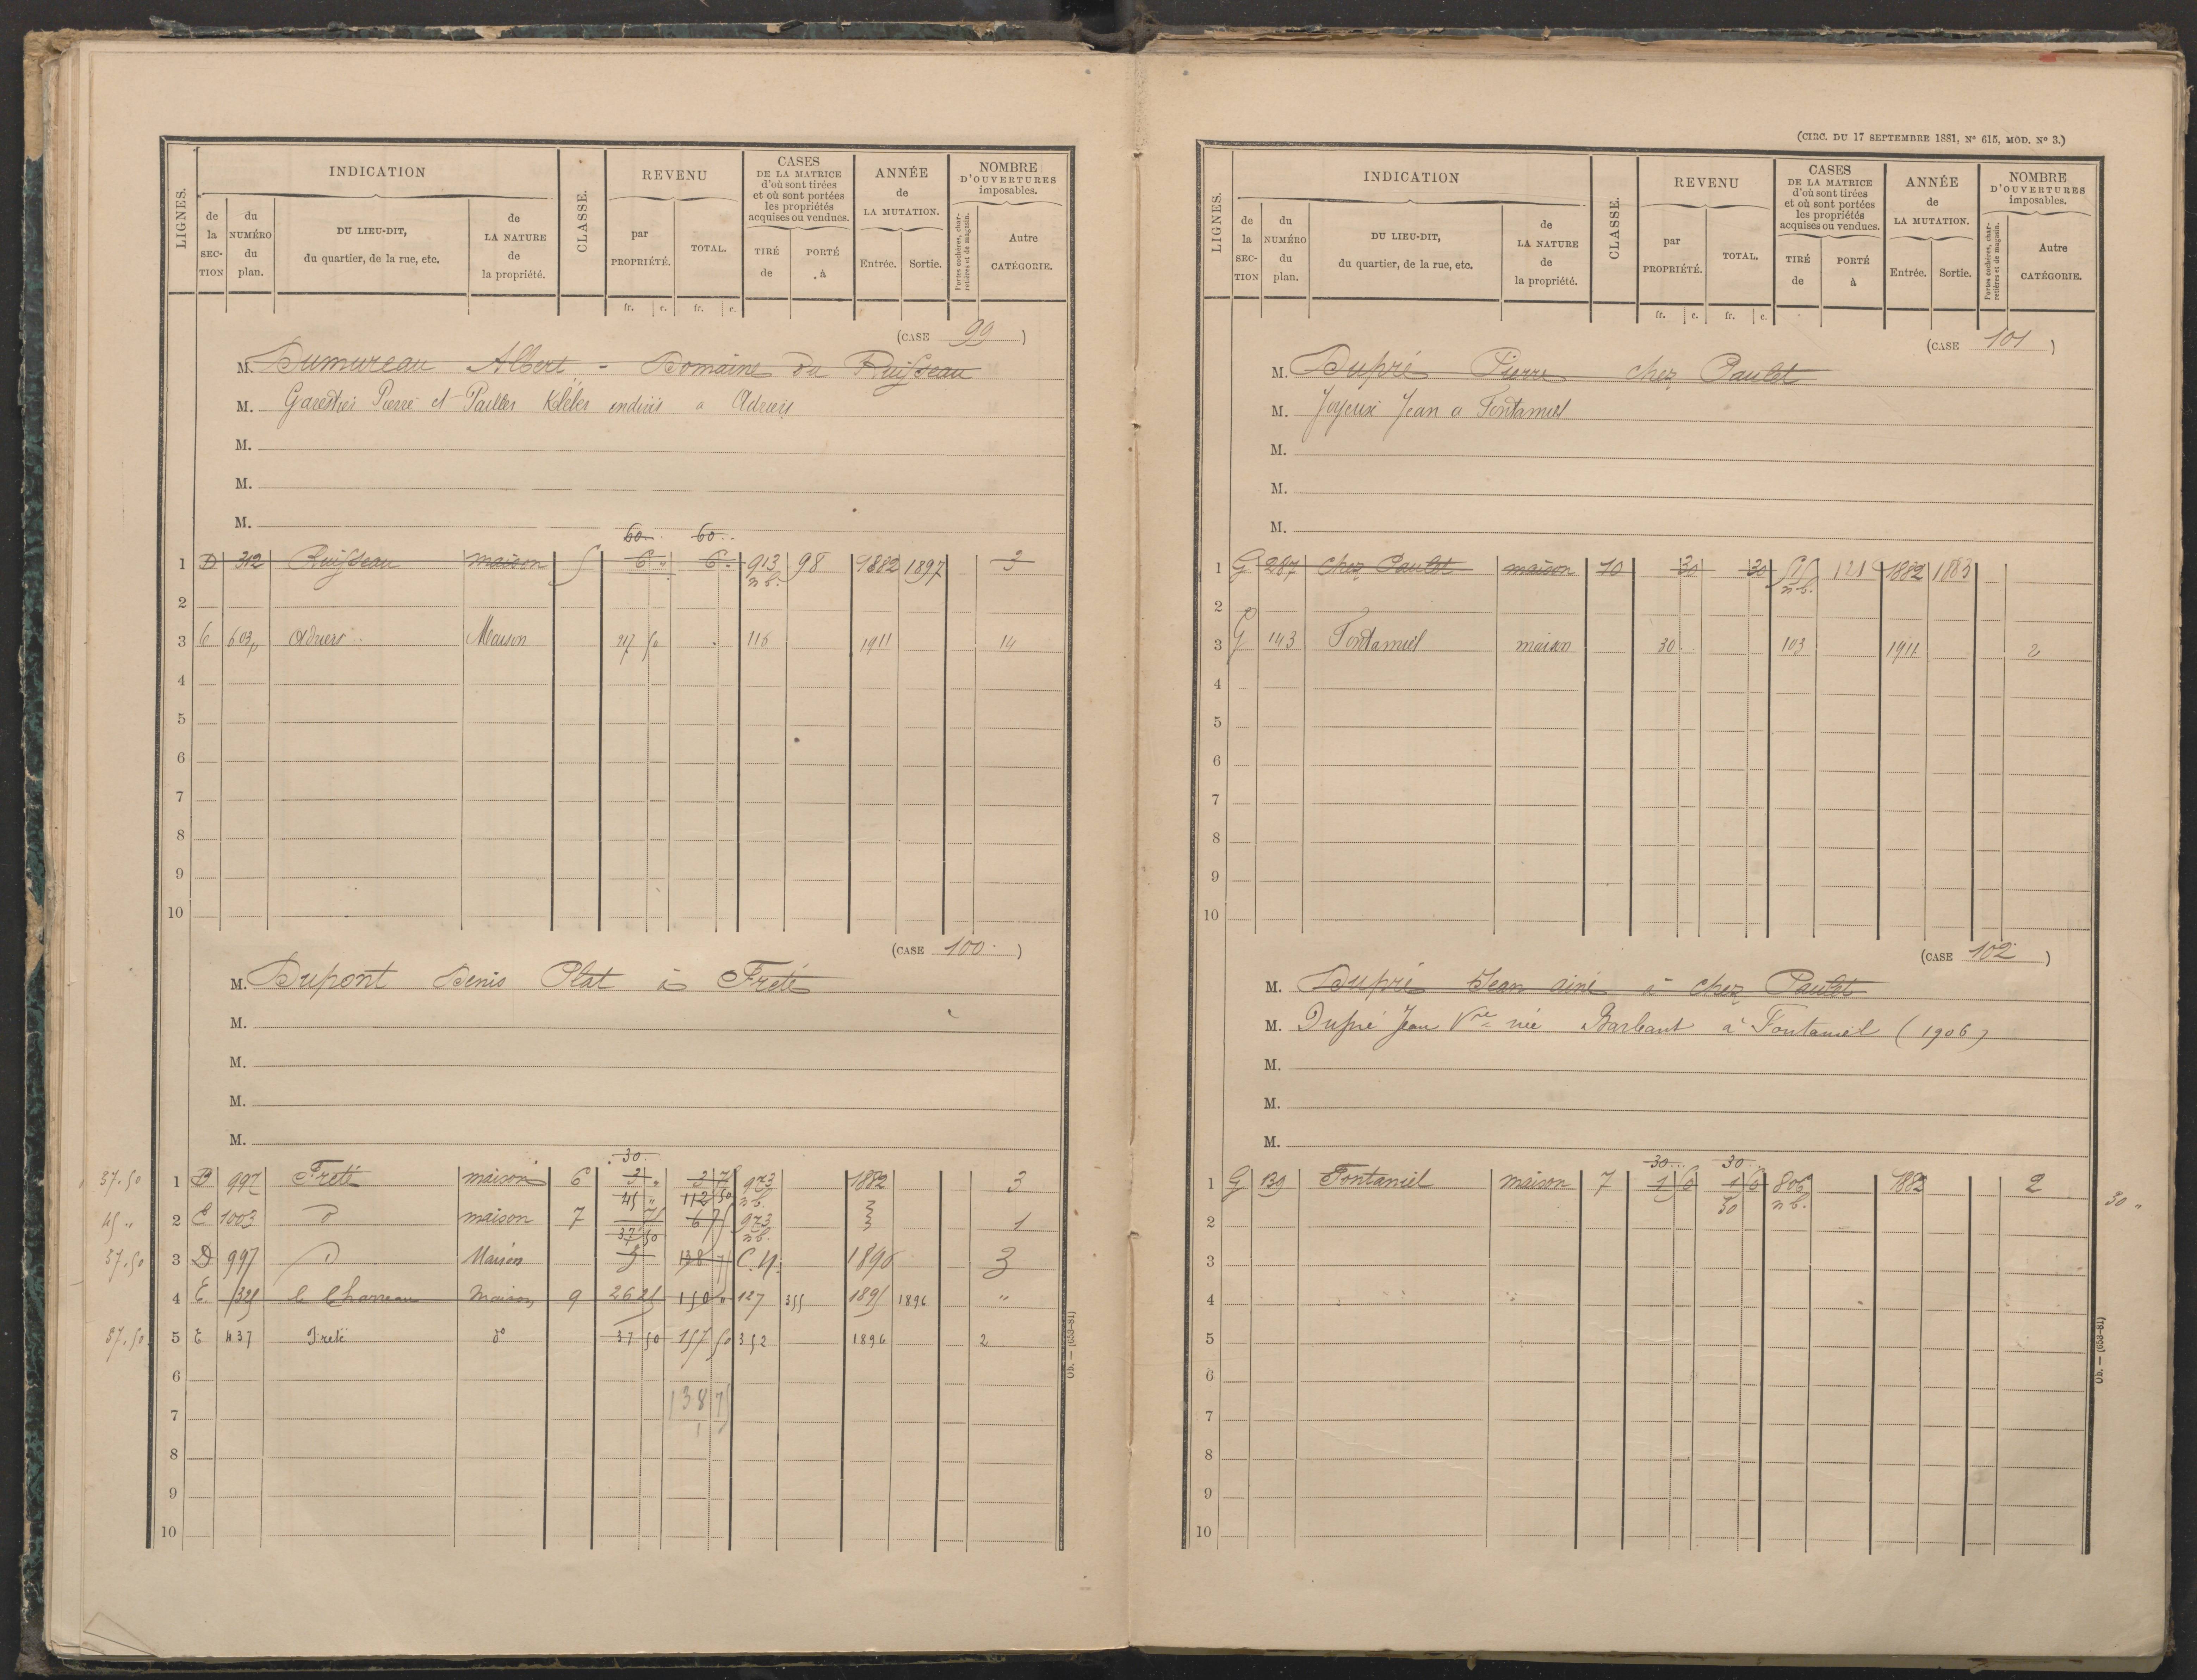 LIGNES.
INDICATION
de la SECTION
du NUMÉRO du plan.
DU LIEU-DIT, du quartier, de la rue, etc.
de LA NATURE de la propriété.
CLASSE.
REVENU
par PROPRIÉTÉ.
TOTAL.
CASES DE LA MATRICE d'où sont tirées et où sont portées les propriétés acquises ou vendues.
TIRÉ de
PORTÉ à
ANNÉE de LA MUTATION.
Entrée.
Sortie.
NOMBRE D'OUVERTURES imposables.
Portes cochères, charretières et de magasin.
Autre CATÉGORIE.
fr. c. fr. c.
(CASE 99)
M. Dumureau Albert - Domaine du Ruisseau
M. Garestier Pierre et à Adriers
M.
M.
M.
60 60
1 D 312 Ruisseau maison 5 6 " 6 " 913 n.b. 98 1882 1897 3
2
3 603p Adriers Maison 50 116 1911 14
4
5
6
7
8
9
10
(CASE 100)
M. Dupont Denis Plat à Freté
M.
M.
M.
M.
30
37.50 1 997 Freté maison 6 3 " 3 7 973 n.b. 1882 3
45 " 112 50
45 " 2 E 1003 d maison 7 75 67 973 n.b. 1
37 50
37.50 3 D 997 d Maison 9 138 75 C.N. 1890 3
4 E 325 le Charreau Maison 9 26 25 150 " 127 355 1895 1896 "
37.50 5 E 437 Freté d° 37 50 157 50 352 1896 2
6
138 75
7
8
9
10
Ob. — (653-81)
(CIRC. DU 17 SEPTEMBRE 1881, N° 615, MOD. N° 3.)
LIGNES.
INDICATION
de la SECTION
du NUMÉRO du plan.
DU LIEU-DIT, du quartier, de la rue, etc.
de LA NATURE de la propriété.
CLASSE.
REVENU
par PROPRIÉTÉ.
TOTAL.
CASES DE LA MATRICE d'où sont tirées et où sont portées les propriétés acquises ou vendues.
TIRÉ de
PORTÉ à
ANNÉE de LA MUTATION.
Entrée.
Sortie.
NOMBRE D'OUVERTURES imposables.
Portes cochères, charretières et de magasin.
Autre CATÉGORIE.
fr. c. fr. c.
(CASE 101)
M. Dupré Pierre chez Paulet
M. Joyeux Jean a Fontamiel
M.
M.
M.
1 G 287 Chez Paulet maison 10 30 30 n.b. 121 1882 1883
2
3 G 143 Fontamiel maison 30 103 1911 2
4
5
6
7
8
9
10
(CASE 102)
M. Dupré Jean ainé à chez Paulet
M. Dupré Jean Vve née Barbant à Fontamiel (1906)
M.
M.
M.
30 30
1 G 139 Fontamiel maison 7 1 50 1 50 806 n.b. 1882 2 30 "
30
2
3
4
5
6
7
8
9
10
Ob. — (653-81)